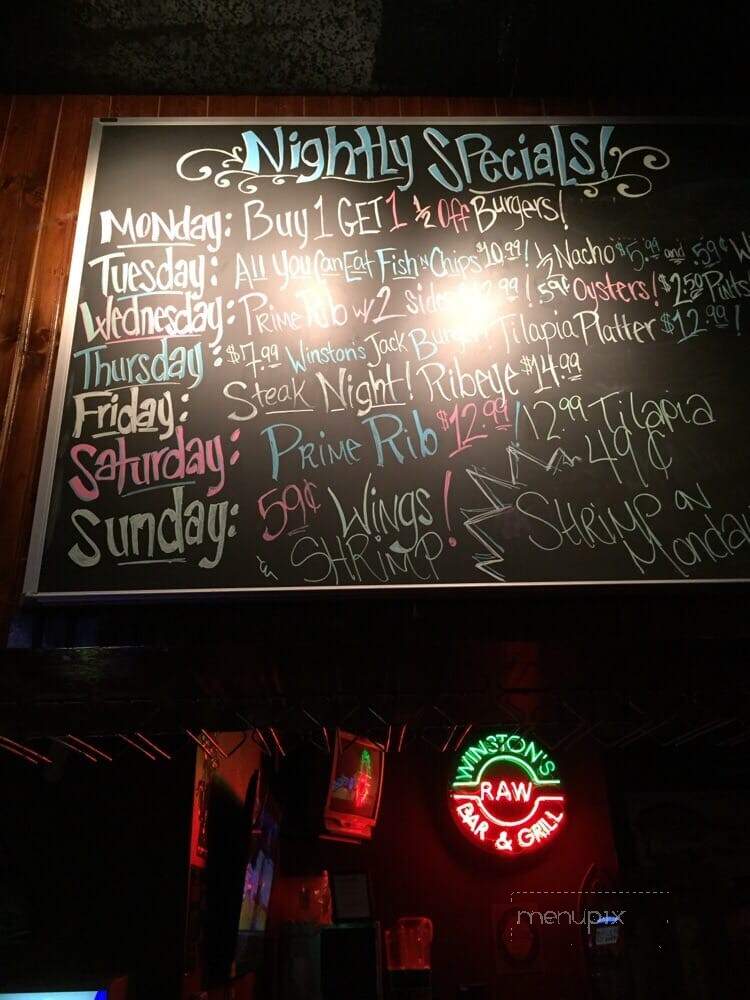 Nightly Specials!
Monday: Buy 1 GET 1 ½ Off Burgers!
Tuesday: All You Can Eat Fish N Chips $10.99! ½ Nacho $5.99 and .59¢ W
Wednesday: Prime Rib w/ 2 sides .99! .59¢ Oysters! $2.50 Pints
Thursday: $7.99 Winston's Jack Burger Tilapia Platter $12.99!
Friday: Steak Night! Ribeye $14.99
Saturday: Prime Rib $12.99! 12.99 Tilapia
Sunday: 59¢ Wings! 49¢
& SHRIMP SHRIMP on
Monday
WINSTON'S
RAW
BAR & GRILL
menupix